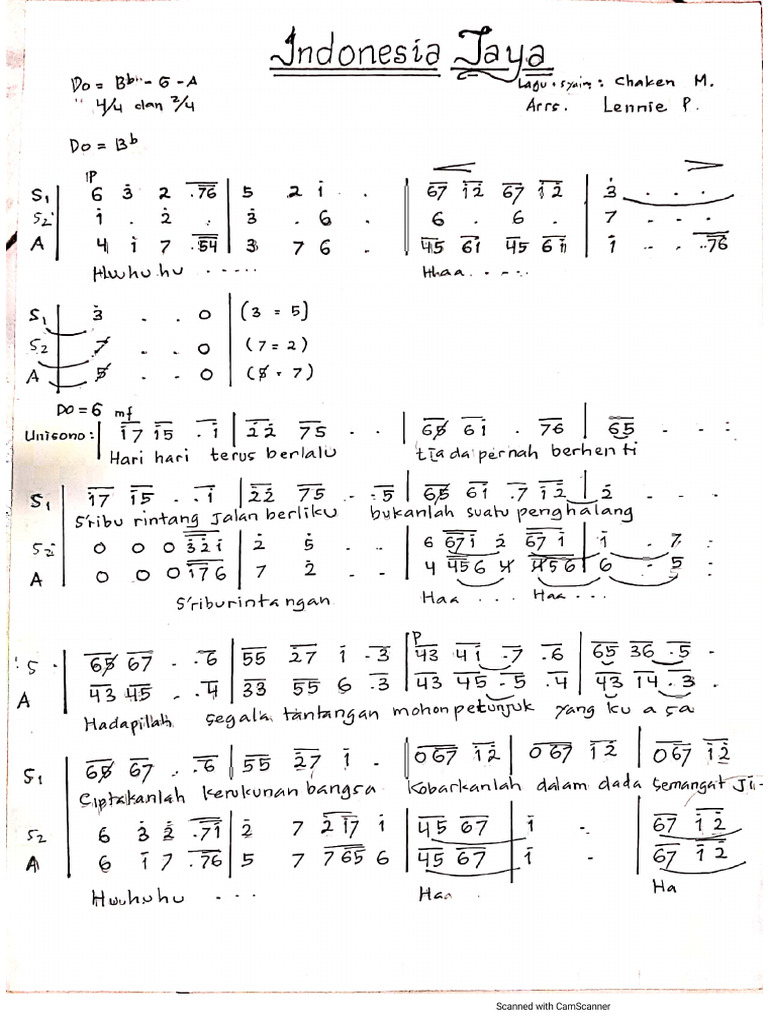 Indonesia Jaya
Do = Bb - G - A
" 4/4 dan 2/4
Lagu + syair : Chaken M.
Arrs. Lennie P.
Do = Bb
1P
S1 | 6 3̇ 2 .76 | 5 2 i . || 67 i2̇ 67 i2̇ | 3̇ . . .
S2 | i . 2̇ . | 3̇ . 6 . || 6 . 6 . | 7 . . .
A | 4 i 7 .54 | 3 7 6 . || 45 6i 45 6i | i . . .76
Hwhuhu ..... Hhaa.....
S1 | 3̇ . . 0 | (3 = 5)
S2 | 7 . . 0 | (7 = 2)
A | 5̸ . . 0 | (5̸ = 7)
Do = G mf
Unisono : | i7 i5 .i | 2̇2̇ 75 . . | 65̸ 6i . 76 | 65 . . :
Hari hari terus berlalu tiada pernah berhenti
S1 | i7 i5 . .i | 2̇2̇ 75 . .5 | 65̸ 6i .7 i2̇ | 2̇ . . .
S'ribu rintang jalan berliku bukanlah suatu penghalang
S2 | 0 0 0 3̇2̇i | 2̇ 5̇ . . | 6 67i 2̇ 67i | i . 7 :
A | 0 0 0 i76 | 7 2̇ . . | 4 456 4̸ 456 | 6 . 5 :
S'riburintangan Haa ... Haa ...
P
S | 65̸ 67 . .6 | 55 2̇7 i .3 | 43 4i .7 .6 | 65 36 .5 .
A | 43 45 . .4 | 33 55 6 .3 | 43 45 .5 .4 | 43 14 .3 .
Hadapilah segala tantangan mohon petunjuk yang ku a sa
S1 | 65̸ 67 . .6 | 55 2̇7 i . || 067 i2̇ | 067 i2̇ | 067 i2̇
Ciptakanlah kerukunan bangsa Kobarkanlah dalam dada semangat Ji-
S2 | 6 3̇ 2̇ .7i | 2̇ 7 2̇i7 i | 45 67 | i . | 67 i2̇
A | 6 i 7 .76 | 5 7 765 6 | 45 67 | i . | 67 i2̇
Hwuhuhu ... Haa . Ha
Scanned with CamScanner